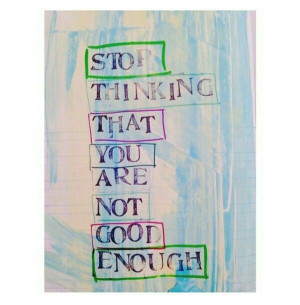 STOP
THINKING
THAT
YOU
ARE
NOT
GOOD
ENOUGH